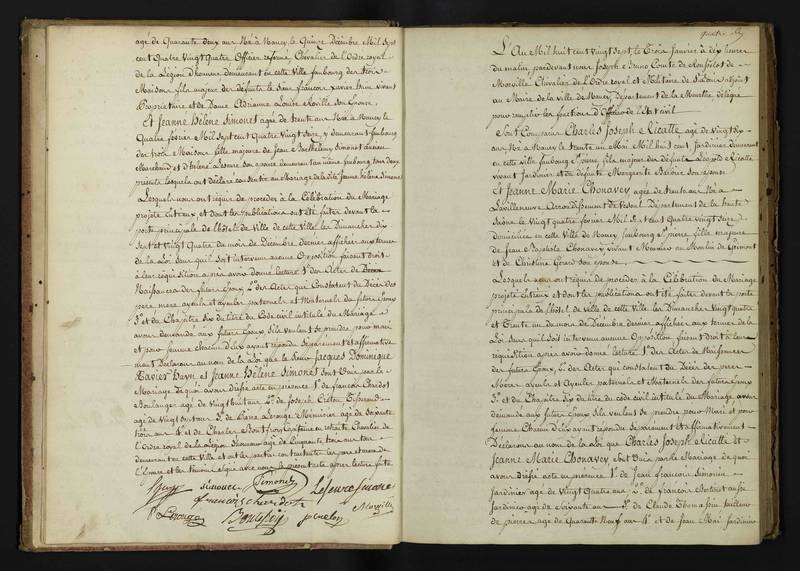 agé de Quarante deux ans Né à Nancy le Quinze Décembre Mil Sept
cent Quatre Vingt Quatre Officier réformé, Chevalier de l'Ordre royal
de la Légion D'honneur demeurant en cette Ville faubourg des trois
Maisons fils majeur de défunts le Sieur françois Xavier vivant
Propriétaire et de Dame Adrienne Louise son Epouse.
Et Jeanne Hélène Simonet agée de trente ans Née à Nancy le
Quatre février Mil Sept cent Quatre Vingt Seize, y demeurant faubourg
des trois Maisons fille majeure de Jean Barthelemy Simonet ancien
Marchand et d'hélène Lesure son Epouse demeurant même faubourg tous deux
présents lesquels ont déclaré consentir au Mariage de la dite Jeanne hélène Simonet
Lesquels nous ont requis de procéder à la Célébration du Mariage
projeté entr'eux et dont les publications ont été faites devant la
porte principale de l'hôtel de Ville de cette Ville les Dimanches dix
Sept et Vingt Quatre du mois de Décembre dernier affichées aux termes
de la Loi Sans qu'il soit intervenu aucune Opposition faisant droit
à leur réquisition après avoir donné lecture 1° des Actes de
Naissance des futurs Epoux, 2° des Actes qui Constatent le Décès des
pere mere ayeuls et ayeules paternels et Maternels du futur Epoux
3° et du Chapitre Six du titre du Code civil intitulé du Mariage
avons demandé aux futurs Epoux s'ils veulent se prendre pour mari
et pour femme chacun d'eux ayant répondu Séparément et affirmative
ment Déclarons au nom de la Loi que le Sieur Jacques Dominique
Xavier et Jeanne Hélène Simonet sont Unis par le
Mariage de quoi avons dressé acte en présence 1° de françois
Boulanger agé de Vingt huit ans 2° de Joseph
agé de Vingt ans 3° de Menuisier agé de Soixante
trois ans 4° et de Charles Capitaine en retraite Chevalier de
l'Ordre royal de la légion d'honneur agé de Cinquante trois ans tous
demeurant en cette Ville et ont les parties
et les témoins signé avec nous le présent acte après lecture faite
Simonet Lefevre
françois
Morville

L'An Mil huit cent Vingt Sept, le Trois Janvier à dix heures
du matin, pardevant nous Joseph Bruno Comte de
Morville Chevalier de l'Ordre royal et Militaire de St Louis adjoint
au Maire de la ville de Nancy Département de la Meurthe délégué
pour remplir les fonctions d'Officier de l'Etat civil
Sont Comparus Charles Joseph Ricatte agé de Vingt Six
ans Né à Nancy le trente un Mai Mil huit cent Jardinier demeurant
en cette ville faubourg St pierre, fils majeur de défunts Léopold Ricatte
vivant Jardinier et de défunte Marguerite son epouse
Et Jeanne Marie Chonavey agée de trente ans Née à
Lavilleneuve Arrondissement de Vesoul Département de la haute
Saône le Vingt quatre février Mil Sept cent Quatre Vingt Seize
domiciliée en cette Ville de Nancy faubourg St pierre fille majeure
de Jean Chonavey vivant Meunier au Moulin de
et de Christine Gérard son epouse,
Lesquels nous ont requis de procéder à la Célébration du Mariage
projeté entr'eux et dont les publications ont été faites devant la porte
principale de l'hôtel de Ville de cette Ville les Dimanches Vingt quatre
et Trente un du mois de Décembre dernier affichées aux termes de la
Loi Sans qu'il soit intervenu aucune Opposition faisant droit à leur
réquisition après avoir donné lecture 1° des Actes de Naissance
des futurs Epoux, 2° des Actes qui constatent le Décès des pere
Mere ayeuls et Ayeules paternels et Maternels des futurs Epoux
3° et du Chapitre Six du titre du code civil intitulé du Mariage, avons
demandé aux futurs Epoux s'ils veulent se prendre pour Mari et pour
femme Chacun d'eux ayant répondu Séparément et affirmativement
Déclarons au nom de la Loi que Charles Joseph Ricatte Et
Jeanne Marie Chonavey sont Unis par le Mariage de quoi
avons dressé acte en présence 1° de Jean françois Simonin
Jardinier agé de Vingt Quatre ans 2° de françois aussi
Jardinier agé de Soixante ans 3° de Claude Thomassin tailleur
de pierres agé de Quarante Neuf ans 4° et de Jean Jardinier